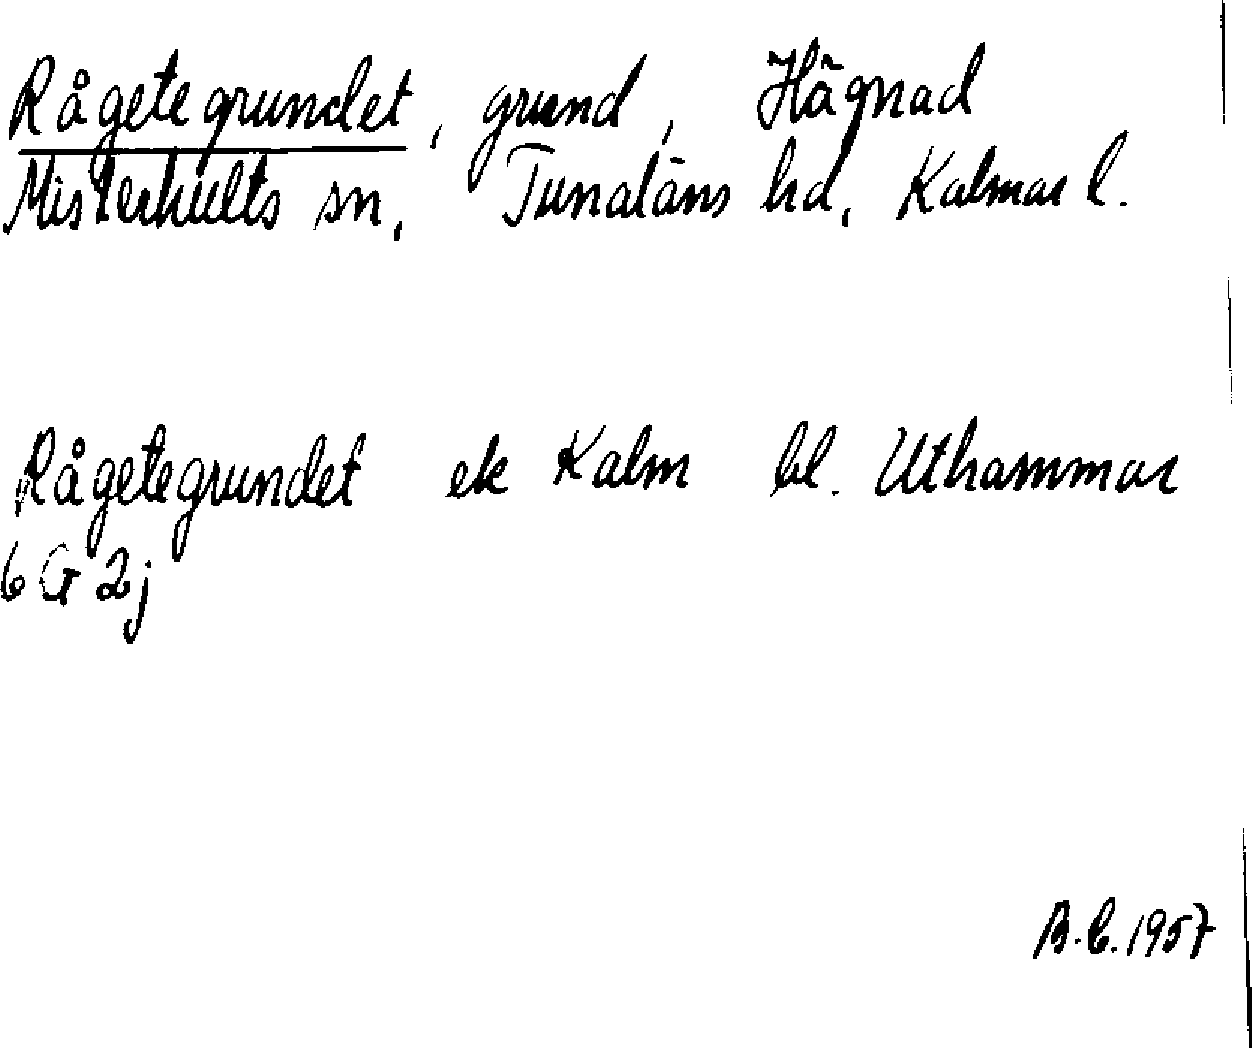 Rågetegrundet, grund, Hägnad
Misterhults sn, Tunaläns hd, Kalmar l.
Rågetegrundet ek Kalm bl. Uthammar
6 G 2j
B.C. 1957